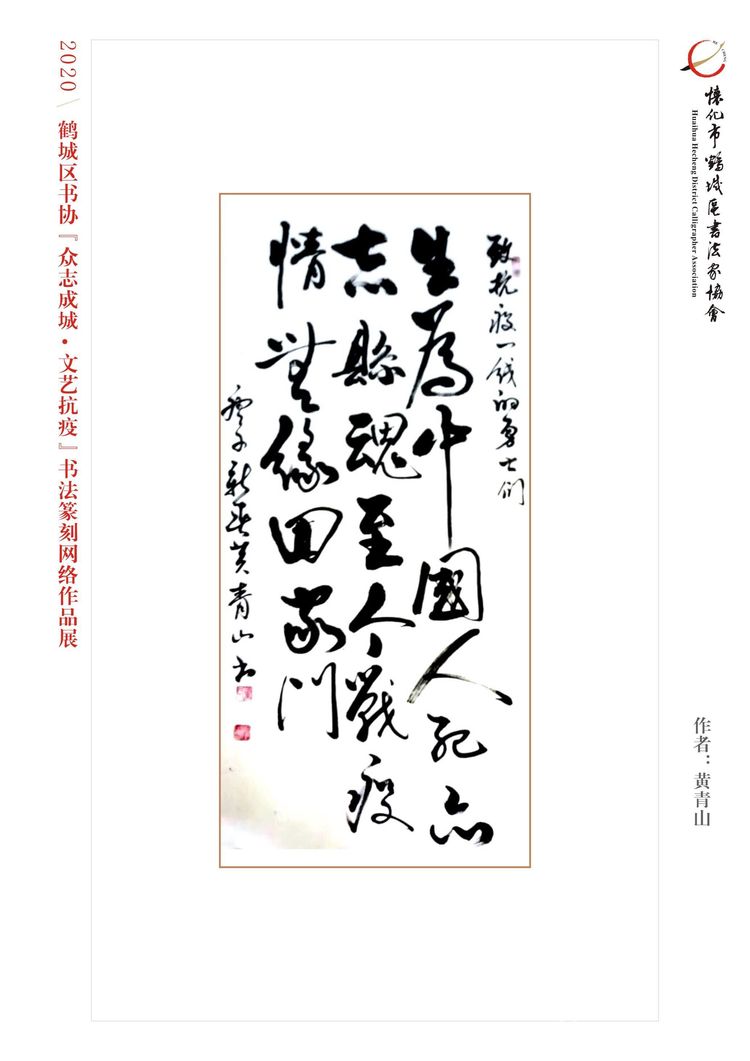 2020
鹤城区书协『众志成城·文艺抗疫』书法篆刻网络作品展
懷化市鶴城區書法家協會
Huaihua Hecheng District Calligrapher Association
致抗疫一线的勇士们
生為中國人死亦
志縣魂至今戰疫
情無緣回家門
庚子新春黄青山书
作者：黄青山